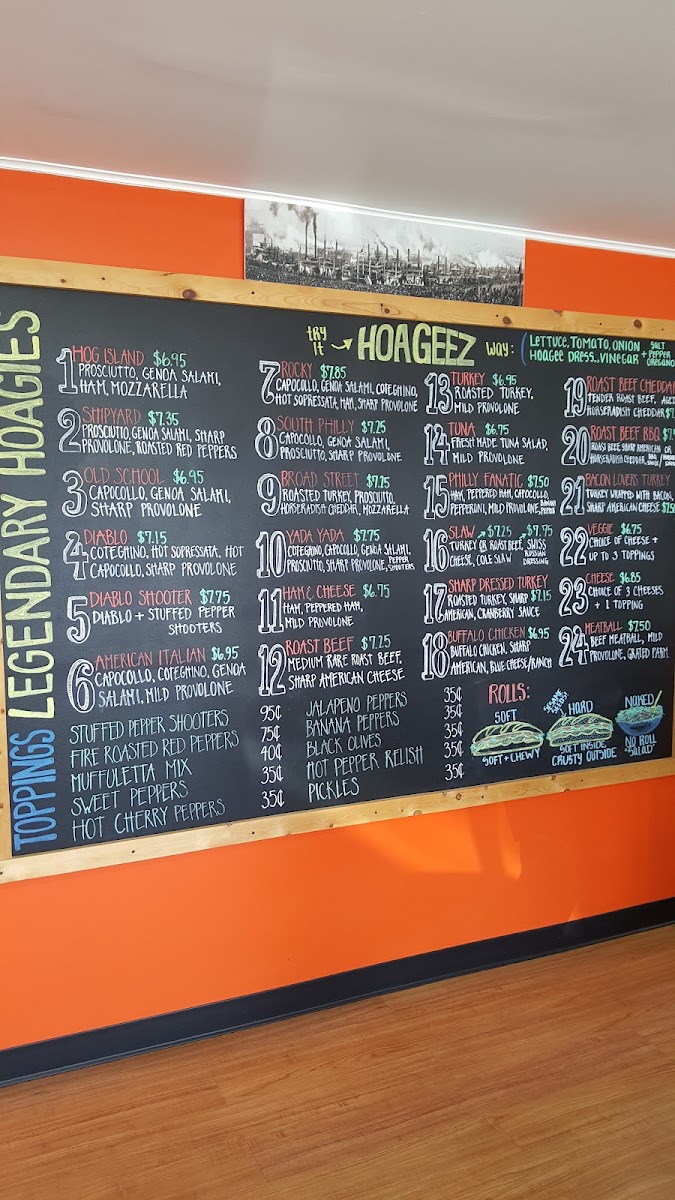 LEGENDARY HOAGIES
TRY
IT → HOAGEEZ WAY:
LETTUCE, TOMATO, ONION
HOAGEE DRESS., VINEGAR +
SALT
PEPPER
OREGANO
1 HOG ISLAND $6.95
PROSCIUTTO, GENOA SALAMI,
HAM, MOZZARELLA
2 SHIPYARD $7.35
PROSCIUTTO, GENOA SALAMI, SHARP
PROVOLONE, ROASTED RED PEPPERS
3 OLD SCHOOL $6.95
CAPOCOLLO, GENOA SALAMI,
SHARP PROVOLONE
4 DIABLO $7.15
COTEGHINO, HOT SOPRESSATA, HOT
CAPOCOLLO, SHARP PROVOLONE
5 DIABLO SHOOTER $7.75
DIABLO + STUFFED PEPPER
SHOOTERS
6 AMERICAN ITALIAN $6.95
CAPOCOLLO, COTEGHINO, GENOA
SALAMI, MILD PROVOLONE
7 ROCKY $7.85
CAPOCOLLO, GENOA SALAMI, COTEGHINO,
HOT SOPRESSATA, HAM, SHARP PROVOLONE
8 SOUTH PHILLY $7.25
CAPOCOLLO, GENOA SALAMI,
PROSCIUTTO, SHARP PROVOLONE
9 BROAD STREET $7.25
ROASTED TURKEY, PROSCIUTTO,
HORSERADISH CHEDDAR, MOZZARELLA
10 YADA YADA $7.75
COTEGHINO, CAPOCOLLO, GENOA SALAMI,
PROSCIUTTO, SHARP PROVOLONE, PEPPER
SHOOTERS
11 HAM & CHEESE $6.75
HAM, PEPPERED HAM,
MILD PROVOLONE
12 ROAST BEEF $7.25
MEDIUM RARE ROAST BEEF,
SHARP AMERICAN CHEESE
13 TURKEY $6.95
ROASTED TURKEY,
MILD PROVOLONE
14 TUNA $6.75
FRESH MADE TUNA SALAD,
MILD PROVOLONE
15 PHILLY FANATIC $7.50
HAM, PEPPERED HAM, CAPOCOLLO,
PEPPERONI, MILD PROVOLONE,
16 SLAW $7.25 $7.75
TURKEY OR ROAST BEEF, SWISS
CHEESE, COLE SLAW
RUSSIAN
DRESSING
17 SHARP DRESSED TURKEY
ROASTED TURKEY, SHARP $7.15
AMERICAN, CRANBERRY SAUCE
18 BUFFALO CHICKEN $6.95
BUFFALO CHICKEN, SHARP
AMERICAN, BLUE CHEESE/RANCH
19 ROAST BEEF CHEDDAR
TENDER ROAST BEEF, AGED
HORSERADISH CHEDDAR
20 ROAST BEEF BBQ
ROAST BEEF, SHARP AMERICAN OR
HORSERADISH CHEDDAR,
21 BACON LOVERS TURKEY
TURKEY WRAPPED WITH BACON,
SHARP AMERICAN CHEESE
22 VEGGIE $6.75
CHOICE OF CHEESE +
UP TO 3 TOPPINGS
23 CHEESE $6.85
CHOICE OF 3 CHEESES
+ 1 TOPPING
24 MEATBALL $7.50
BEEF MEATBALL, MILD
PROVOLONE, GRATED PARM.
TOPPINGS
STUFFED PEPPER SHOOTERS 95¢
FIRE ROASTED RED PEPPERS 75¢
MUFFULETTA MIX 40¢
SWEET PEPPERS 35¢
HOT CHERRY PEPPERS 35¢
JALAPENO PEPPERS 35¢
BANANA PEPPERS 35¢
BLACK OLIVES 35¢
HOT PEPPER RELISH 35¢
PICKLES 35¢
ROLLS:
SOFT
SOFT + CHEWY
SESAME
SEEDS
HARD
SOFT INSIDE,
CRUSTY OUTSIDE
NAKED
NO ROLL
"SALAD"